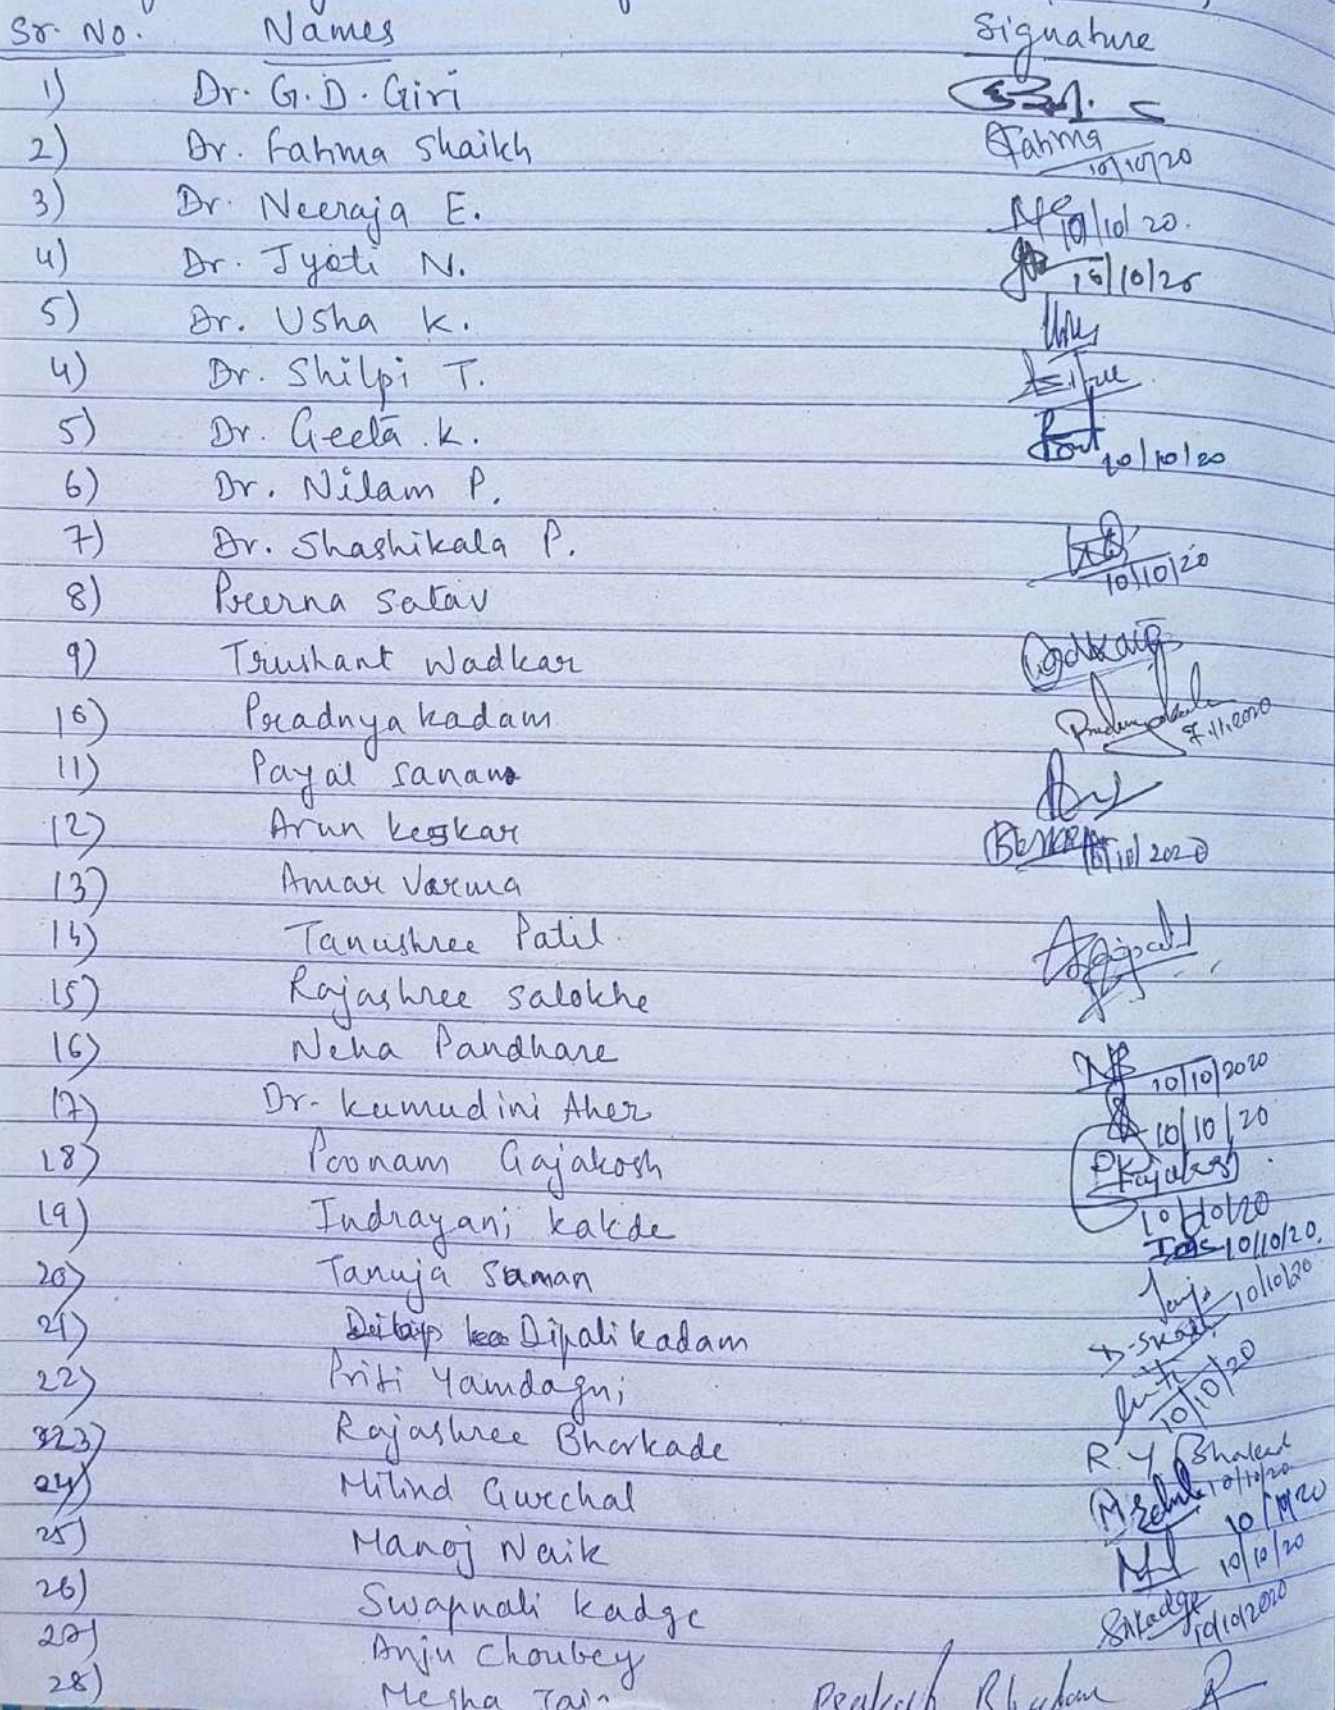 Sr. No. Names Signature
1) Dr. G.D. Giri
2) Dr. Fahma Shaikh Fahma 10/10/20
3) Dr. Neeraja E. 10/10/20.
4) Dr. Jyoti N. 10/10/20
5) Dr. Usha K.
4) Dr. Shilpi T.
5) Dr. Geeta .K. 10/10/20
6) Dr. Nilam P.
7) Dr. Shashikala P. 10/10/20
8) Prerna Satav
9) Trushant Wadkar
10) Pradnya Kadam 7.11.2020
11) Payal
12) Arun Keskar 10/10/2020
13) Amar Varma
14) Tanushree Patil
15) Rajashree Salokhe
16) Neha Pandhare 10/10/2020
17) Dr. Kumudini Aher 10/10/20
18) Poonam Gajakosh 10/10/20
19) Indrayani Kakde 10/10/20.
20) Tanuja Suman 10/10/20
21) Dipali Kadam
22) Priti Yamdagni 10/10/20
23) Rajashree Bharkade R. Y
24) Milind Gurchal 10/10/20
25) Manoj Naik 10/10/20
26) Swapnali Kadge Skadge 10/10/2020
27) Anju Choubey
28) Megha Jain Prakash